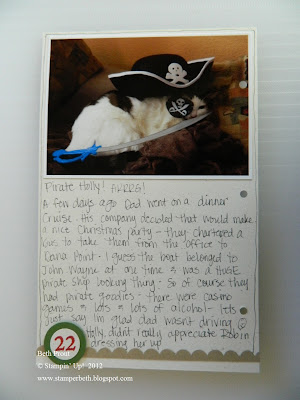 Pirate Holly! ARRRG!
A few days ago Rod went on a dinner
Cruise. His company decided that would make
a nice Christmas party - they chartered a
bus to take them from the office to
Dana Point. I guess the boat belonged to
John Wayne at one time & was a HUGE
pirate ship looking thing. So of course they
had pirate goodies - there were casino
games & lots & lots of alcohol - lets
Just say Im glad dad wasnt driving ☺
Holly didn't really appreciate Robin
dressing her up
22
Beth Prout
© Stampin' Up! 2012
www.stamperbeth.blogspot.com